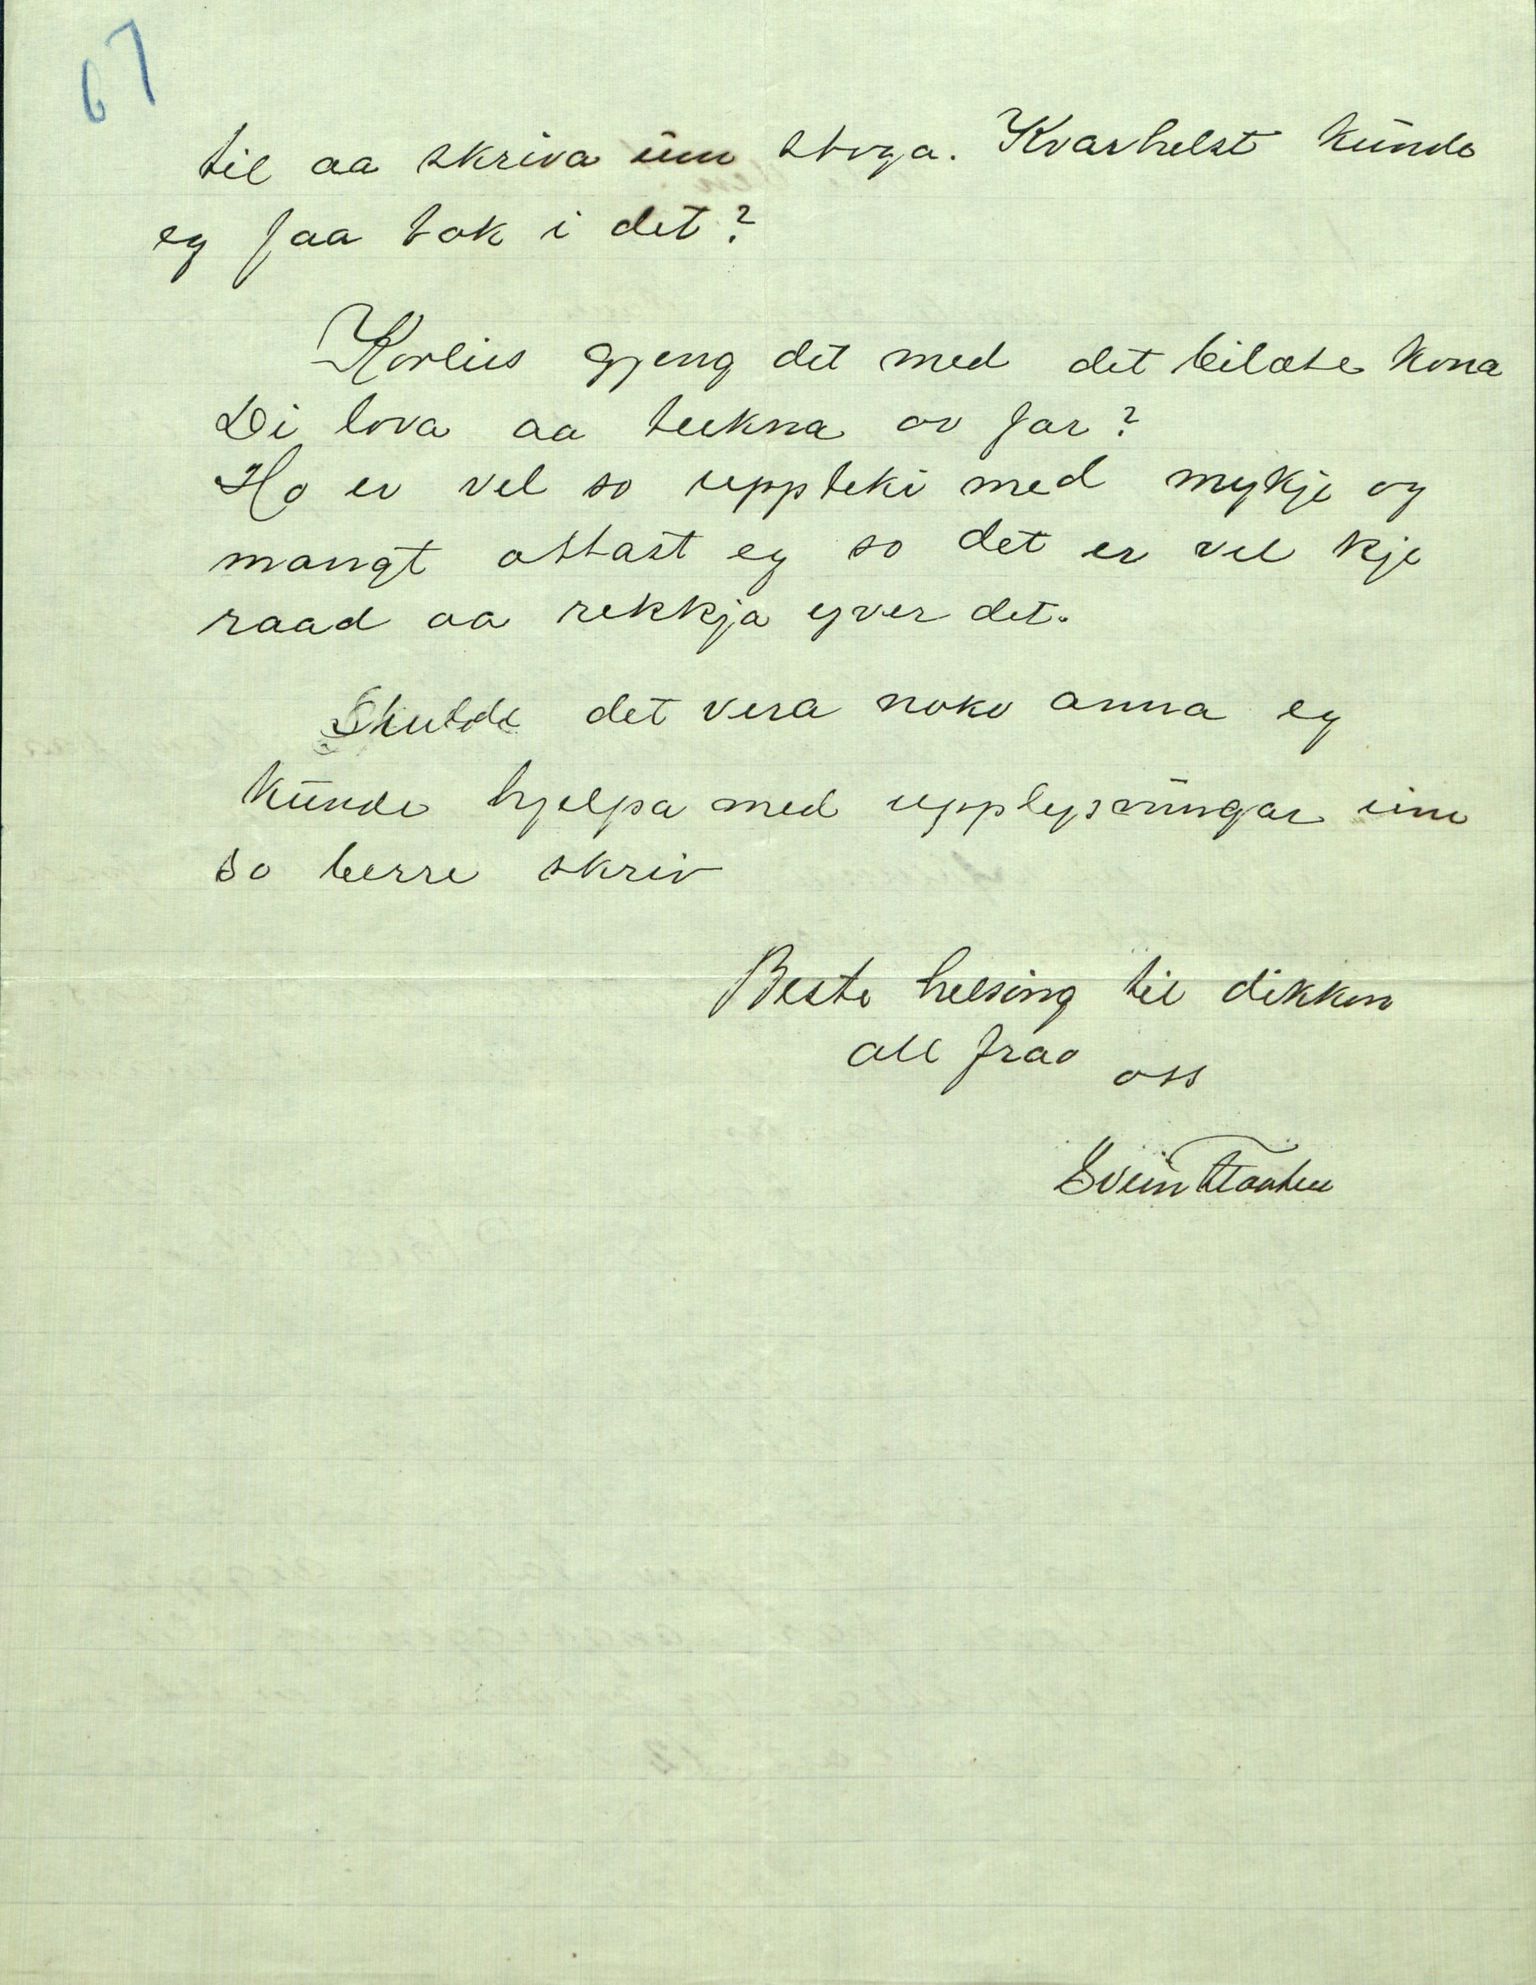 67
til aa skriva um stoga. Kvarhelst kunde
eg faa tak i det?
Korleis gjeng det med det bilæte kona
Di lova aa teikna av far?
Ho er vel so uppteki med mykje og
mangt ottast eg so det er vel kje
raad aa rekkja yver det.
Skulde det vera noko anna eg
kunde hjelpa med upplysningar um
so berre skriv
Beste helsing til dikkon
all fraa oss
Svein